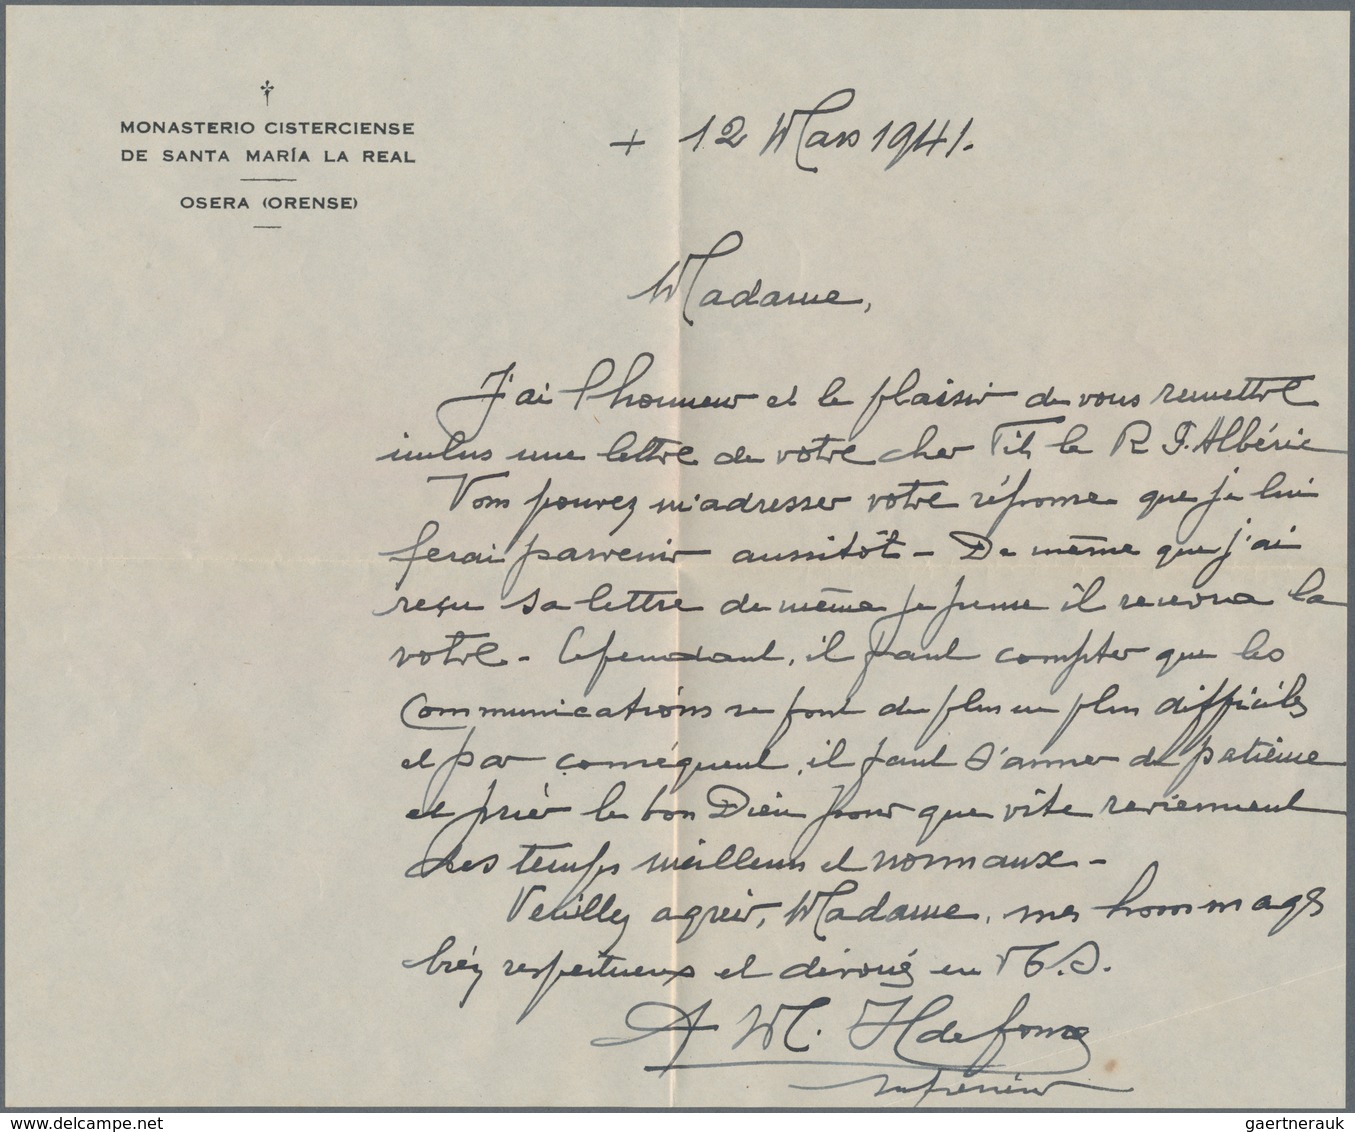 MONASTERIO CISTERCIENSE
DE SANTA MARÍA LA REAL
OSERA (ORENSE)
+ 12 Mars 1941.
Madame,
J'ai l'honneur et le plaisir de vous remettre
inclus une lettre de votre cher Fils le R. F. Albéric
Vous pouvez m'adresser votre réponse que je lui
ferai parvenir aussitôt - De même que j'ai
reçu sa lettre de même je pense il recevra la
votre - Cependant, il faut compter que les
communications se font de plus en plus difficiles
et par conséquent, il faut s'armer de patience
et prier le bon Dieu pour que vite reviennent
des temps meilleurs et normaux -
Veuillez agréer, Madame, mes hommages
très respectueux et dévoués en N. S.
M. Ildefonse
supérieur
gaertnerauk / delcampe.net